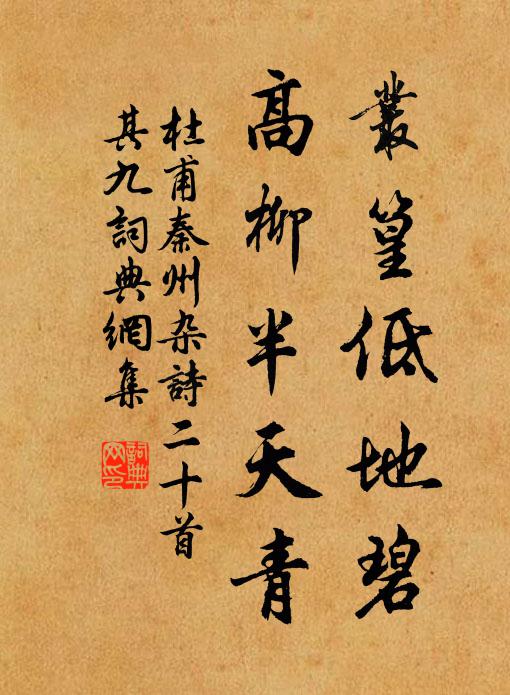 叢篁低地碧
高柳半天青
杜甫秦州杂詩二十首
其九詞典網集
詞典網印